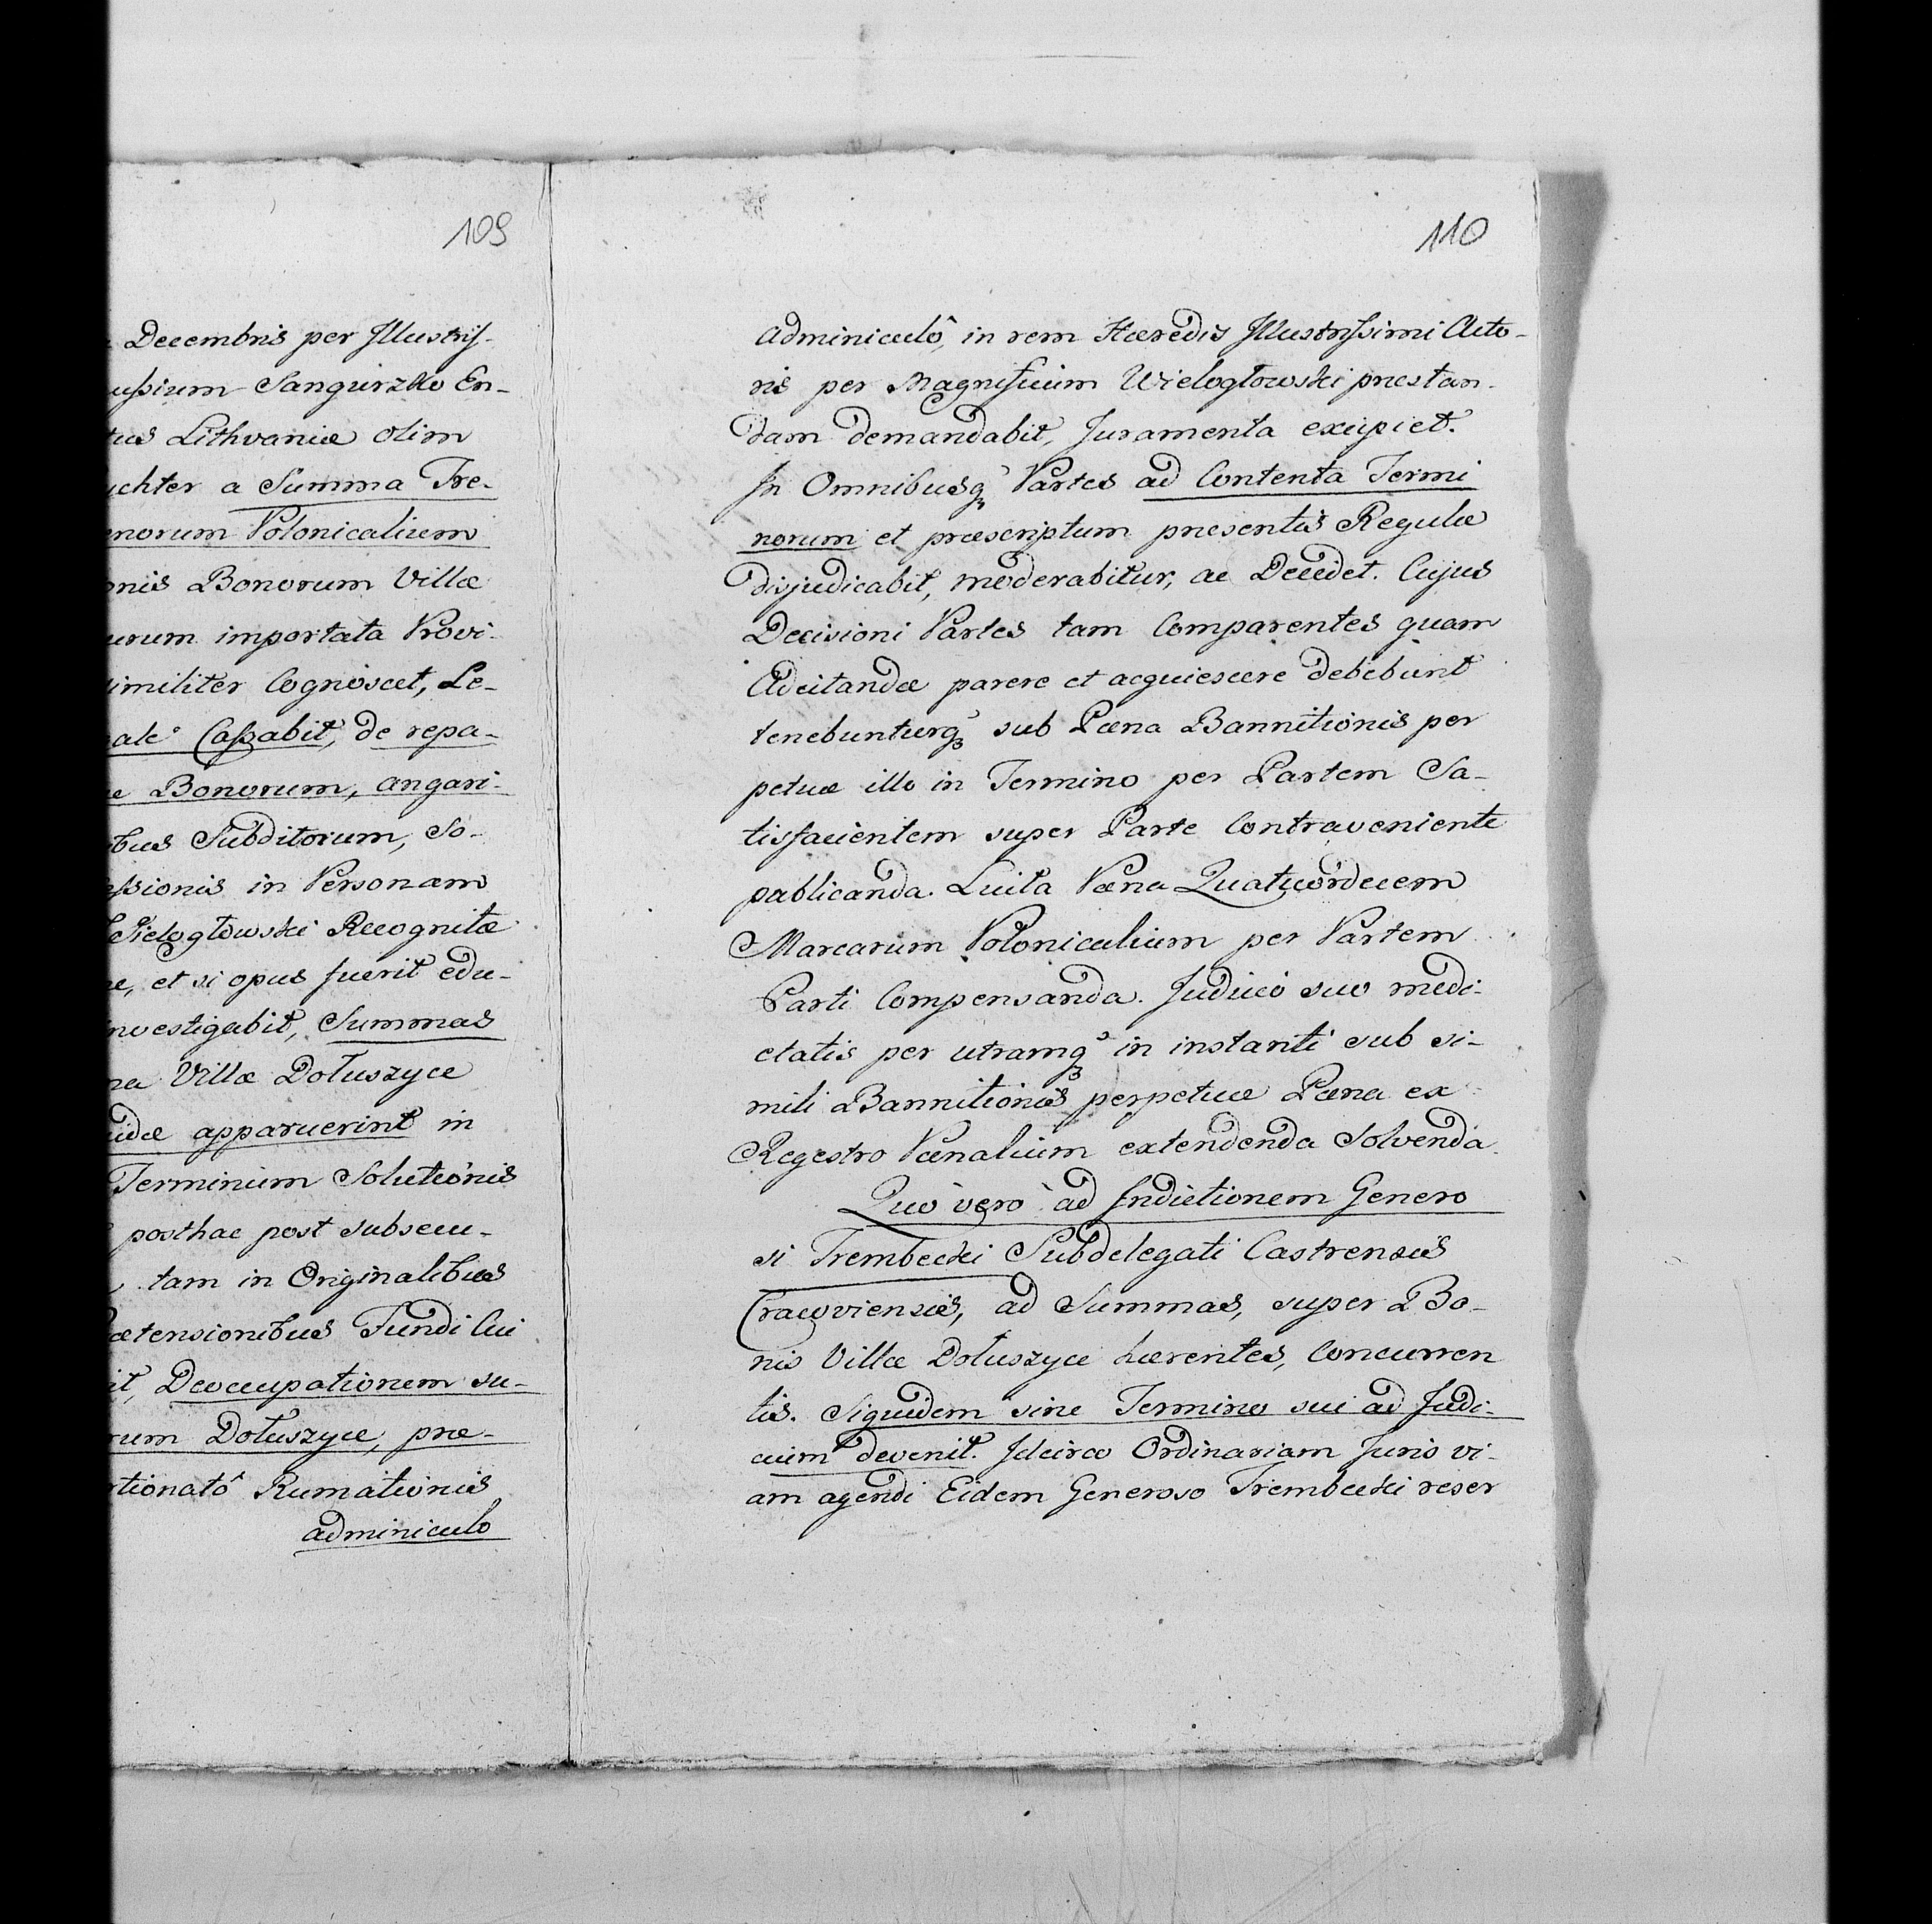 109
Decembris per Illustris-
ussium Sanguszko En-
tus Lithvaniæ olim
uchter a Summa Tre-
enorum Polonicalium
onis Bonorum Villæ
urum importata Provi-
similiter Cognoscet, Le-
Cassabit, de repa-
e Bonorum, angari-
ibus Subditorum, So-
essionis in Personam
Wieloglowski Recognitæ
e, et si opus fuerit edu-
investigabit, Summas
na Villæ Doluszyce
uidæ apparuerint in
Terminum Solutionis
posthac post subsecu-
tam in Originalibus
rætensionibus Fundi Cui
it, Deoccupationem su-
rum Dołuszyce, præ-
rtionatô Rumationis
adminiculo
110
adminiculô, in rem Hæredis Illustrissimi Acto-
ris per Magnificum Wielogłowski præstan-
dam demandabit, Juramenta excipiet.
In Omnibusq3 Partes ad Contenta Termi
norum et præscriptum præsentis Regulæ
disjudicabit, moderabitur, ac Decedet. Cujus
Decisioni Partes tam Comparentes quam
Adcitandæ parere et acquiescere debebunt
tenebunturq3 sub Pæna Bannitionis per
petuæ illo in Termino per Partem Sa-
tisfacientem super Parte Contraveniente
publicanda. Luita Pæna Quatuordecem
Marcarum Polonicalium per Partem
Parti Compensanda. Judicio suo medi-
etatis per utramq3 in instanti sub si-
mili Bannitionis perpetuæ Pæna ex
Regestro Pænalium extendenda Solvenda.
Quò verò ad Indictionem Genero
si Trembecki Subdelegati Castrensis
Cracoviensis, ad Summas, super Bo-
nis Villæ Doluszyce hærentes, Concurren
tis. Siquidem sine Termino sui ad Judi-
cium devenit. Idcirco Ordinariam Juris vi-
am agendi Eidem Generoso Trembecki reser